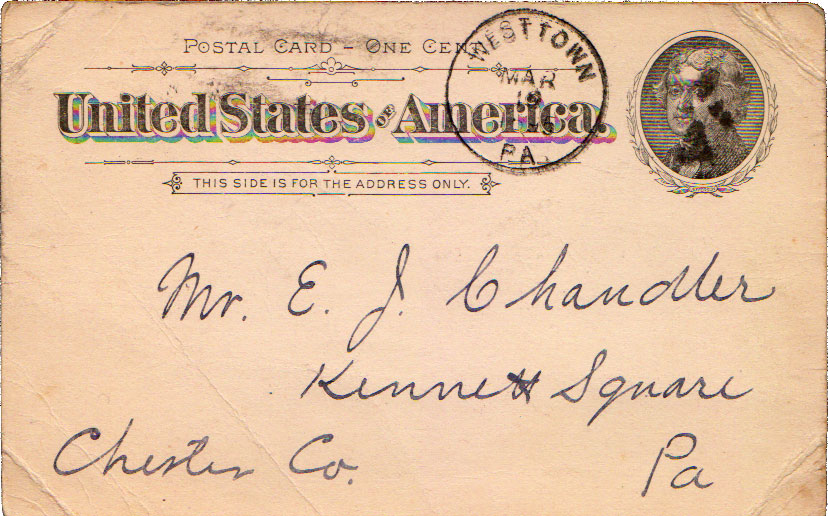 POSTAL CARD – ONE CENT
United States OF America.
THIS SIDE IS FOR THE ADDRESS ONLY.
WESTTOWN
MAR
19
PA.
Mr. E. J. Chandler
Kennett Square
Chester Co. Pa